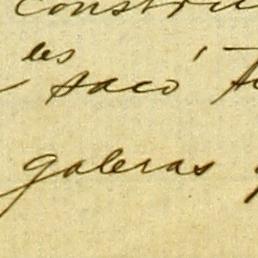 constru
les
sacó
galeras